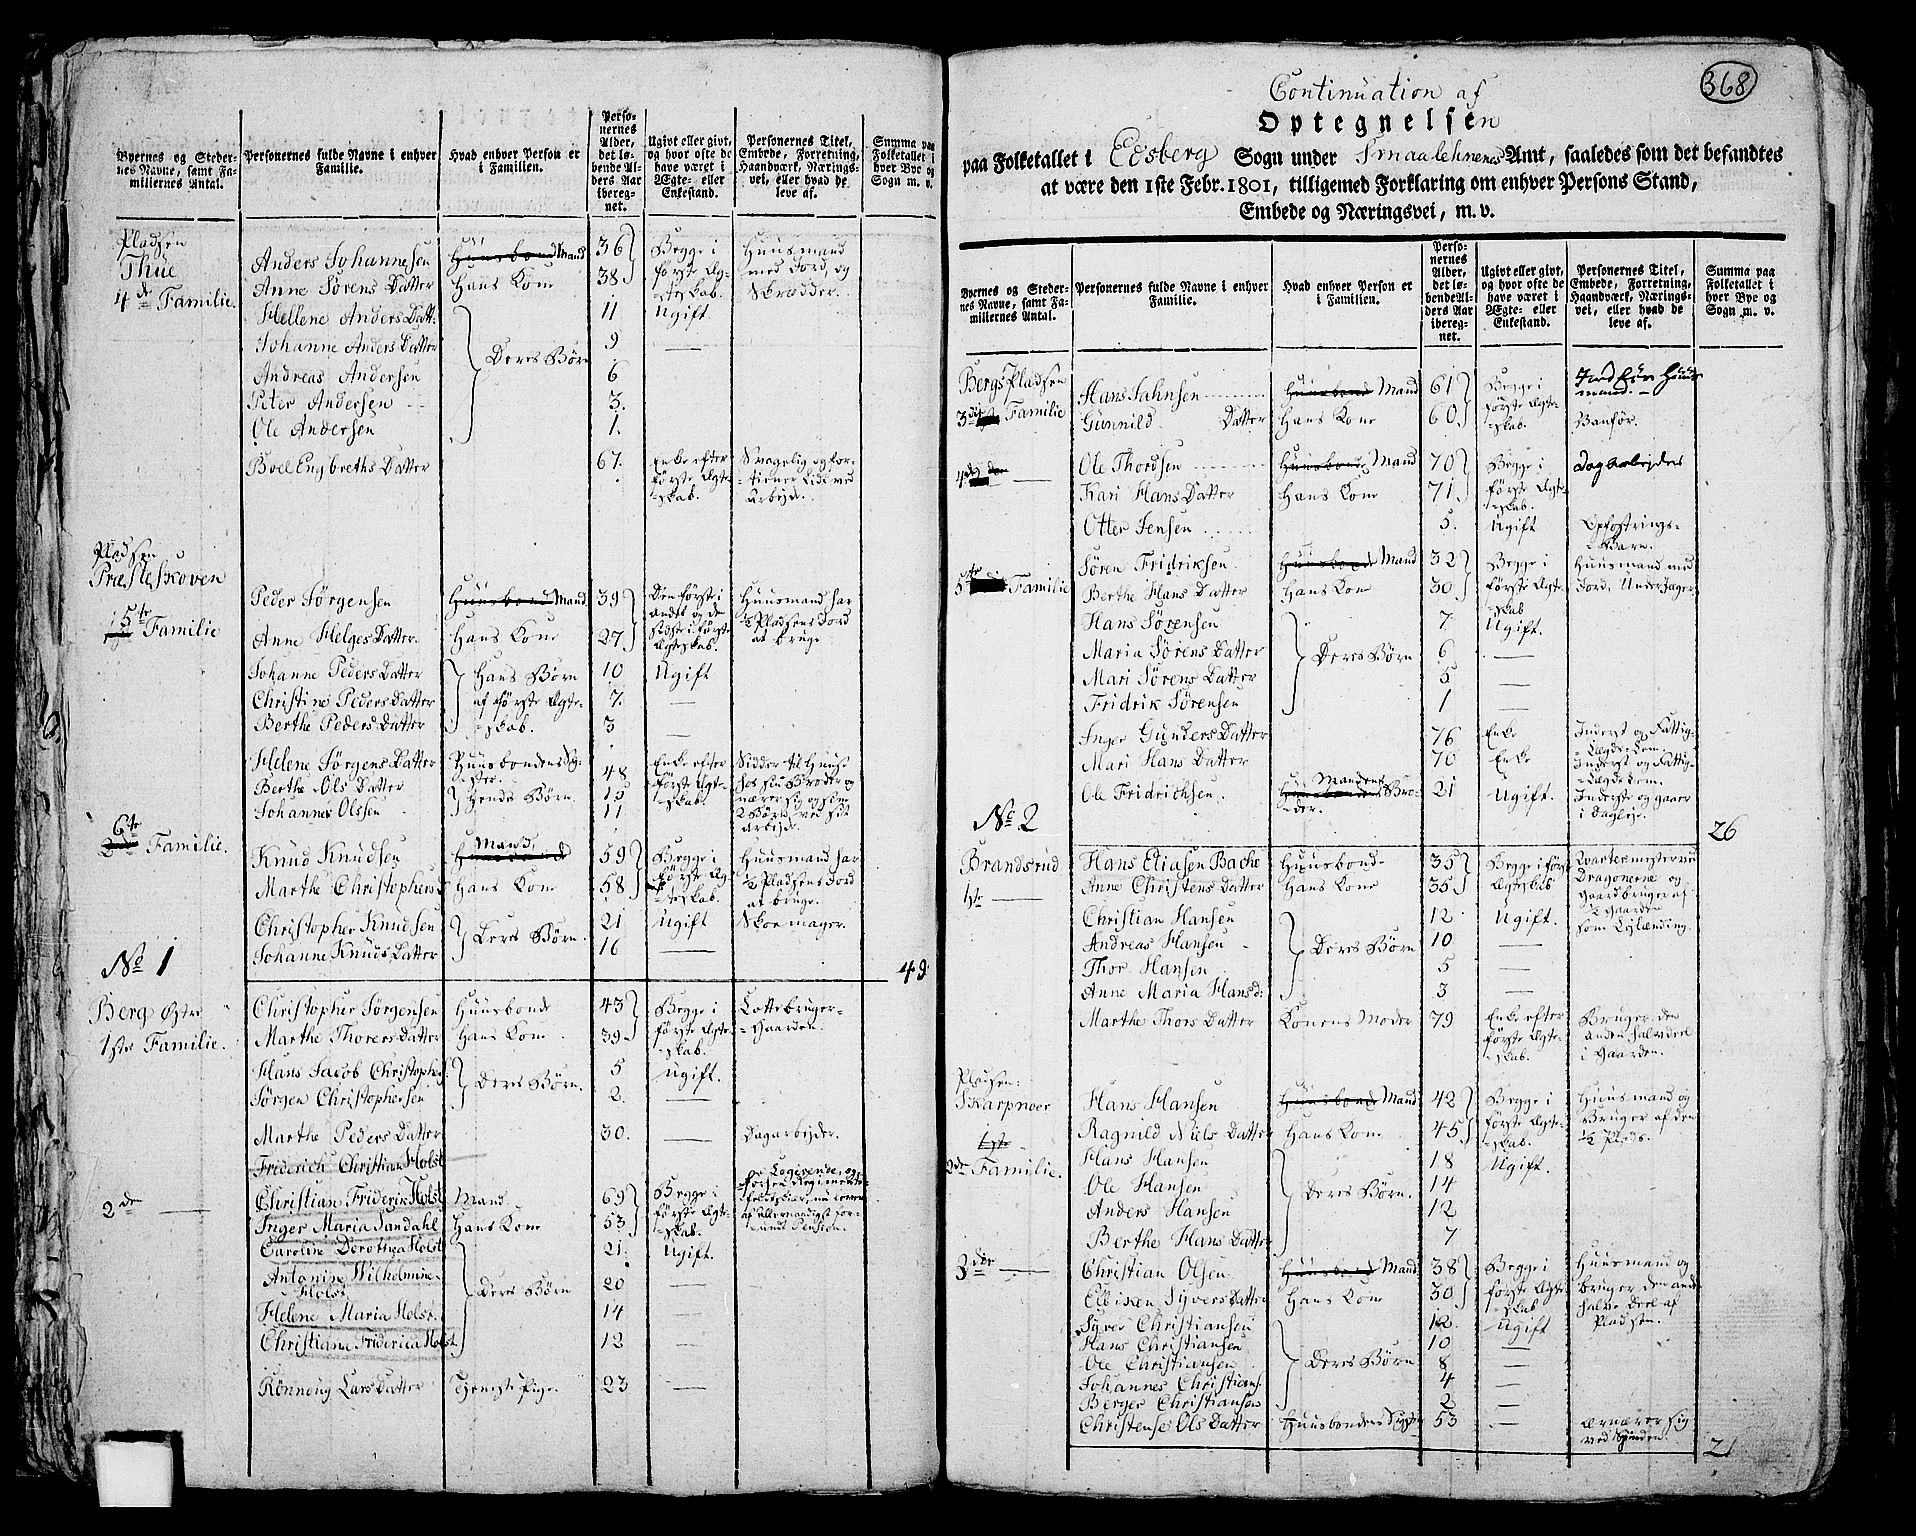 Byernes og Steder-
nes Navne, samt Fa-
miliernes Antal.
Personernes fulde Navne i enhver
Familie.
Hvad enhver Person er
i Familien.
Perso-
nernes
Alder,
det lø-
bende Al-
ders Aar
ibereg-
net.
Ugivt eller givt,
og hvor ofte de
have været i
Ægte- eller
Enkestand.
Personernes Titel,
Embede, Forretning,
Haandværk, Nærings-
vei, eller hvad de
leve af.
Summa paa
Folketallet i
hver Bye og
Sogn m. v.
Pladsen
Thue
4de Familie.
Anders Johannesen Huusbond Mand 36 Begge i første Ægteskab. Huusmand med Jord, og Skrædder.
Anne Sørens Datter Hans Kone 38
Hellene Anders Datt. 11 Ugift
Johanne Anders Datter Deres Børn 9 —
Andreas Andersen 6
Peter Andersen 3.
Ole Andersen 1.
Boel Engbreths Datter 67. Enke efter første Ægteskab. Svagelig og fortiener lidt ved Arbejde.
Pladsen
Præsteskoven
5te Familie
Peder Jørgensen Huusbond Mand 39 Den første i andet og de sidste i første Ægteskab. Huusmand har ½ Pladsens Jord at bruge
Anne Helges Datter. Hans Kone 27
Johanne Peders Datter Hans Børn af første Ægteskab. 10 Ugift
Christine Peders Datter 7. —
Berthe Peders Datter 3 —
Helene Jørgens Datter Huusbondens Syster. 48 Enke efter første Ægteskab Sidder til Huuse hos sin Broder og nærer sig og sine 2 Børn ved sit Arbejde.
Berthe Ols Datter Hends Børn. 15
Johannes Olsen 11
6te
2de Familie.
Knud Knudsen Huusbond Mand 59 Begge i første Ægteskab. Huusmand har ½ Pladsens Jord at bruge.
Marthe Christophers Hans Kone 58
Christopher Knudsen Deres Børn. 21 Ugift Skoemager.
Johanne Knuds Datter 16 —
49
No 1
Berg Østre
1ste Familie.
Christopher Jørgensen Huusbonde 43 Begge i første Ægteskab. Lottebruger Gaarden.
Marthe Thorers Datter Hans Kone. 39
Hans Jacob Christophs. Deres Børn. 5 Ugift.
Jørgen Christophersen 2. —
Marthe Peders Datter 30. — Dagarbejder.
Friderich Christian Holst
2de —
Christian Friderik Holst Mand 69 Begge i første Ægteskab.
Inger Maria Sandahl Hans Kone 53
Caroline Dorothea Holst Deres Børn 21. Ugift.
Antonine Wilhelmine Holst 20 —
Helene Maria Holst. 14 —
Christiana Friderica Holst 12 —
Rönneug Lars Datter Tjeneste Pige. 23 —
368
Continuation af
Optegnelsen
paa Folketallet i Eedsberg Sogn under Smaalehnenes Amt, saaledes som det befandtes
at være den 1ste Febr. 1801, tilligemed Forklaring om enhver Persons Stand,
Embede og Næringsvei, m. v.
Byernes og Steder-
nes Navne, samt Fa-
miliernes Antal.
Personernes fulde Navne i enhver
Familie.
Hvad enhver Person er
i Familien.
Perso-
nernes
Alder,
det lø-
bende Al-
ders Aar
ibereg-
net.
Ugivt eller givt,
og hvor ofte de
have været i
Ægte- eller
Enkestand.
Personernes Titel,
Embede, Forretning,
Haandværk, Nærings-
vei, eller hvad de
leve af.
Summa paa
Folketallet i
hver Bye og
Sogn m. v.
Bergs Pladsen
3die Familie
Hans Jahnsen Huusbond Mand 61 Begge i første Ægteskab.
Gunnild Datter Hans Kone 60
4de —
Ole Thordsen Huusbonde Mand 70 Begge i første Ægteskab. Dagarbejder
Kari Hans Datter Hans Kone 71.
Otter Jensen 5. Ugift Opfostrings Barn.
5te Familie
Søren Fridriksen Huusbonde Mand 32 Begge i første Ægteskab Huusmand med Jord. Under Jager
Berthe Hans Datter Hans Kone 30
Hans Sørensen Deres Børn 7 Ugift.
Maria Sörens Datter 6 —
Mari Sörens Datter 5 —
Fridrik Sørensen 1 —
Inger Gunders Datter 76 Enke Inderst og Fattig Lægds Lem.
Mari Hans Datter 70 Enke Inderst og Fattig Lægds Lem.
Ole Fridrichsen. Huusbondens Mandens Broder. 21 Ugift. Inderste og gaaer i Dagleje.
26
No 2
Brandsrud
1ste —
Hans Eliasen Bache Huusbonde 35 Begge i første Ægteskab Qvartermester ved Dragonerne og Gaardbruger af ½ Gaarden som Leylænding.
Anne Christens Datter Hans Kone 35
Christian Hansen Deres Børn 12 Ugift.
Andreas Hansen 10 —
Thor Hansen 5 —
Anne Maria Hansd: 3 —
Marthe Thors Datter Konens Moder 79 Enke efter første Ægteskab. Bruger den anden halve deel i Gaarden.
Pladsen:
Skarpnoer
1ste
2de Familie.
Hans Hansen Huusbond Mand 42 Begge i første Ægteskab. Huusmand og Bruger af den ½ Plads.
Ragnild Niels Datter Hans Kone 45
Hans Hansen Deres Børn. 18 Ugift.
Ole Hansen 14
Anders Hansen 12
Berthe Hans Datter 7
3die —
Christian Olsen Huusbond Mand 38 Begge i første Ægteskab Huusmand og bruger den anden halve Deel af Pladsen.
Ellisken Syvers Datter Hans Kone 30
Syver Christiansen Deres Børn 12. Ugift
Hans Christiansen 10 —
Ole Christiansen 8 —
Johannes Christians. 4 —
Berger Christiansen 2 —
Christense Ols Datter Huusbondens Syster 53 — ernærer sig ved Spinden.
21